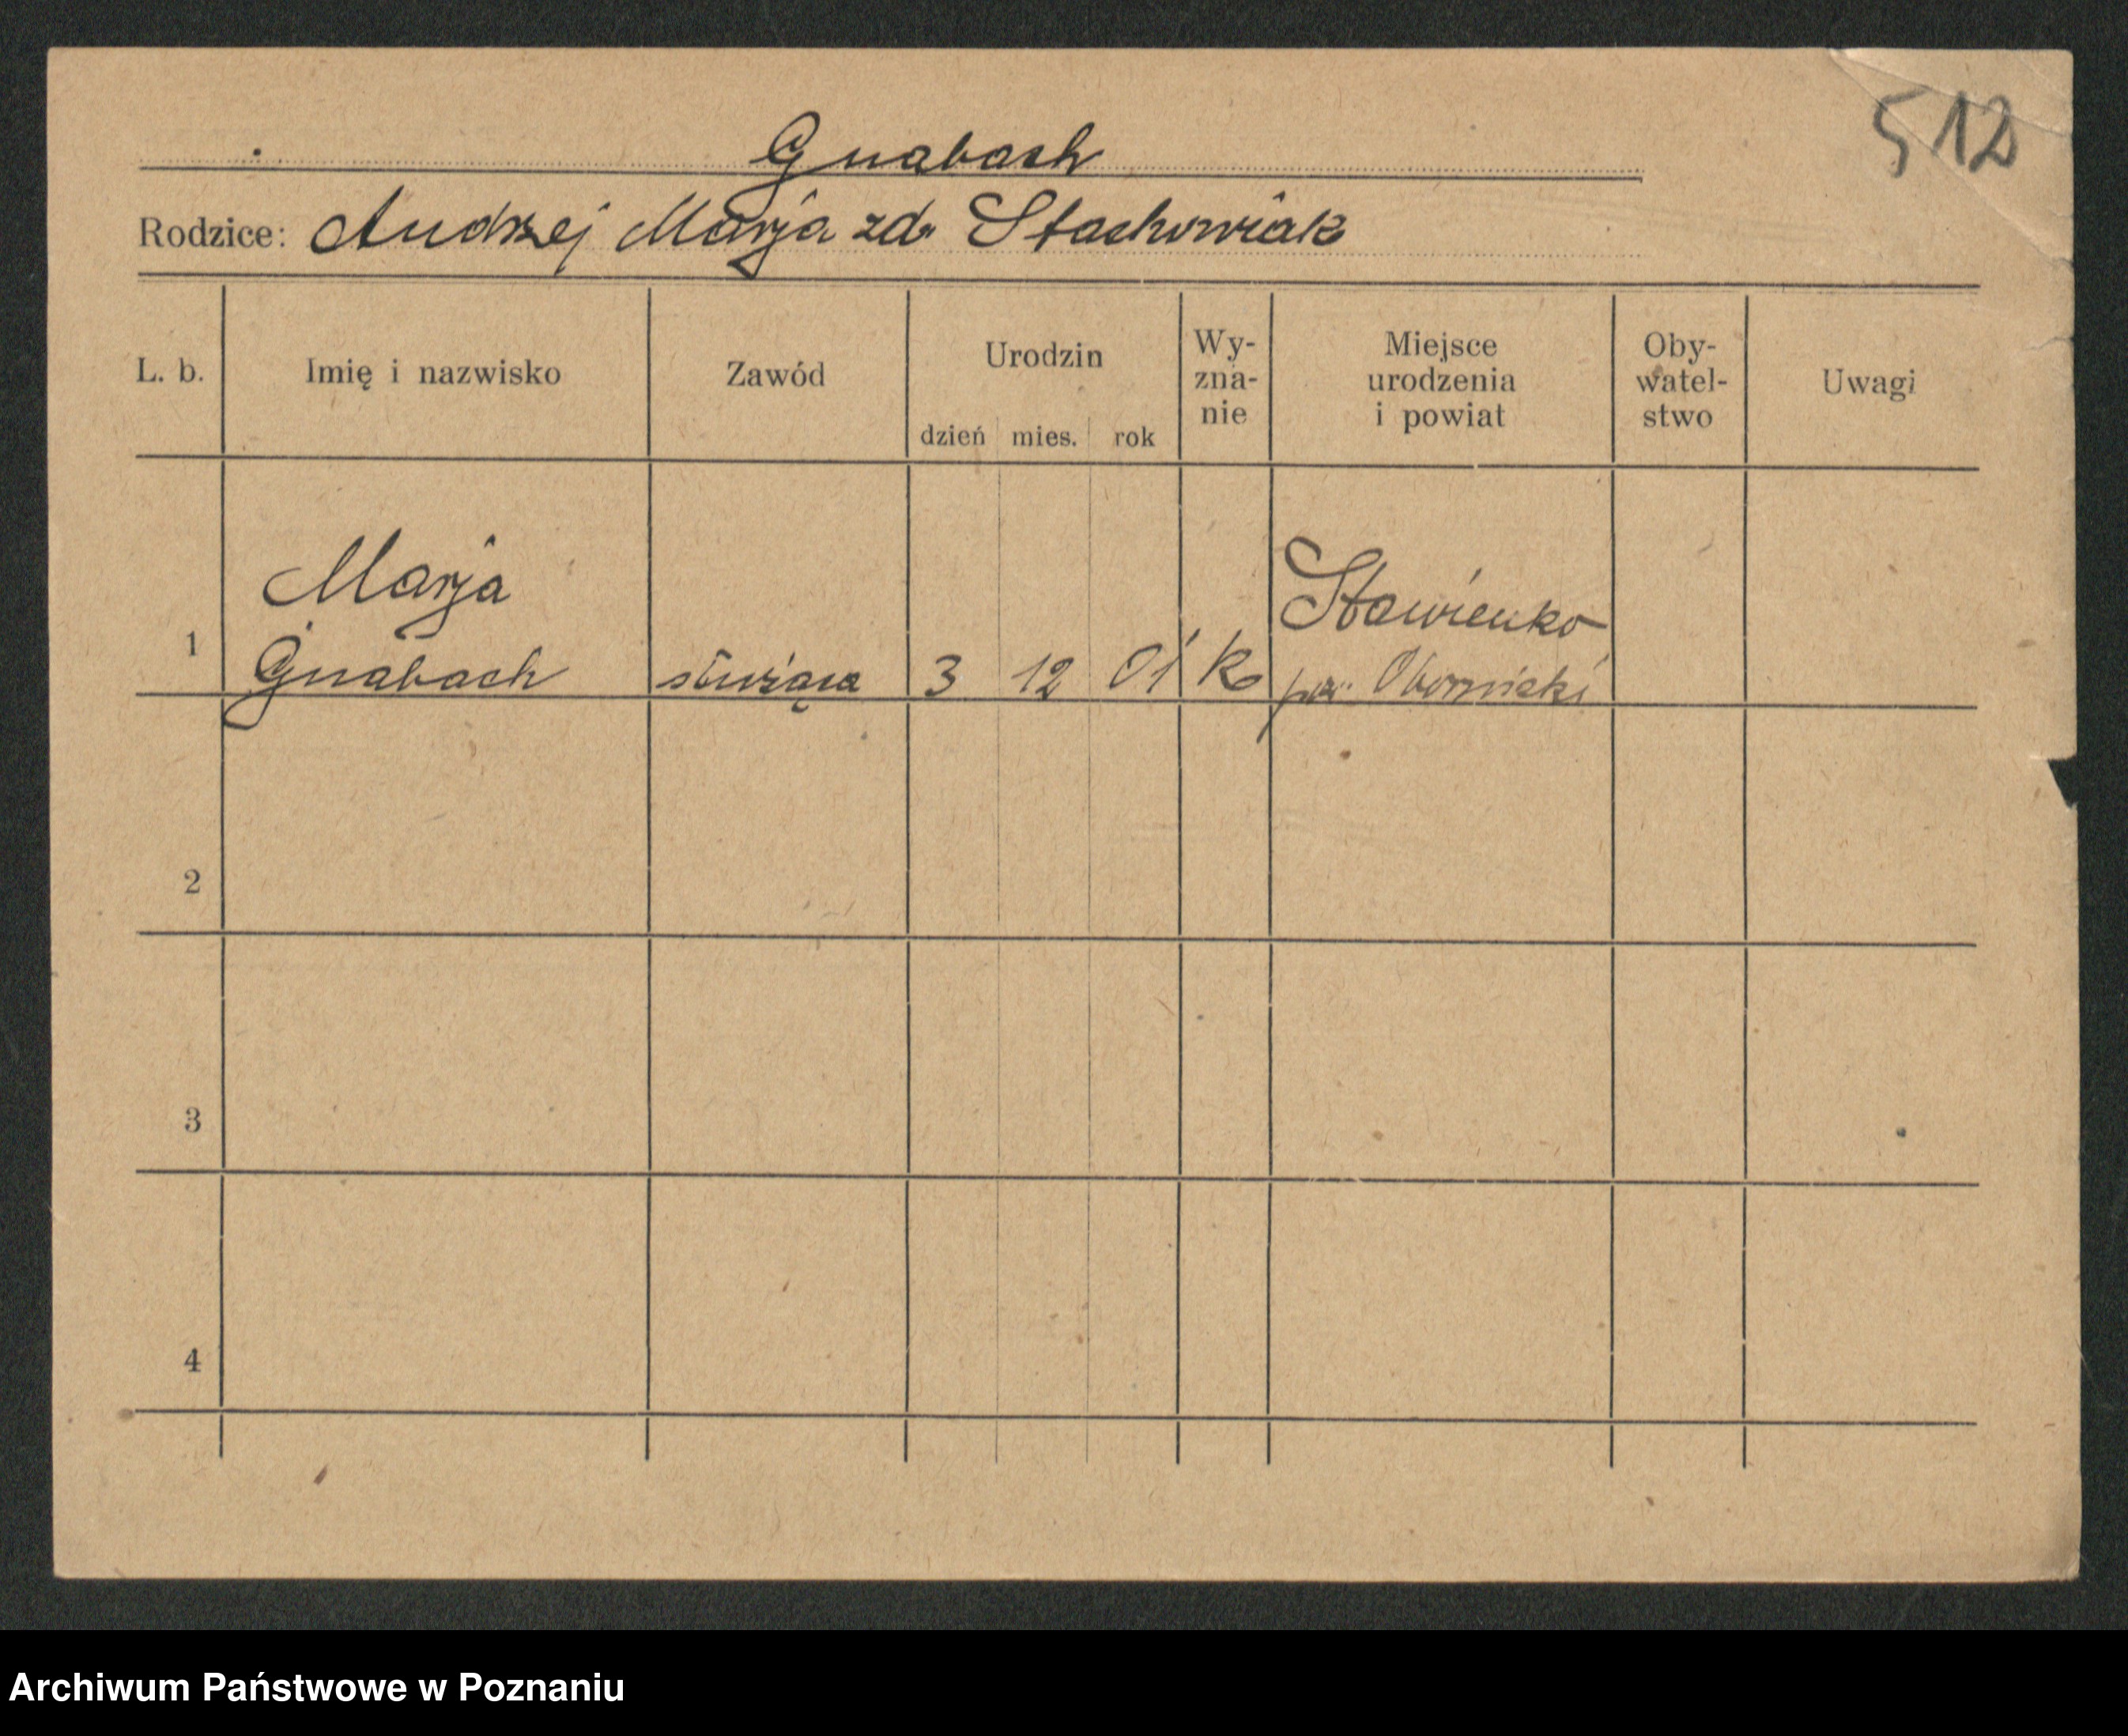 512
Gnabach
Rodzice: Andrzej Marja zd. Stachowiak
L. b.
Imię i nazwisko
Zawód
Urodzin
dzień mies. rok
Wy-
zna-
nie
Miejsce
urodzenia
i powiat
Oby-
watel-
stwo
Uwagi
1
Marja
Gnabach
służąca
3 12 01
K
Sławienko
pow. Obornicki
2
3
4
Archiwum Państwowe w Poznaniu